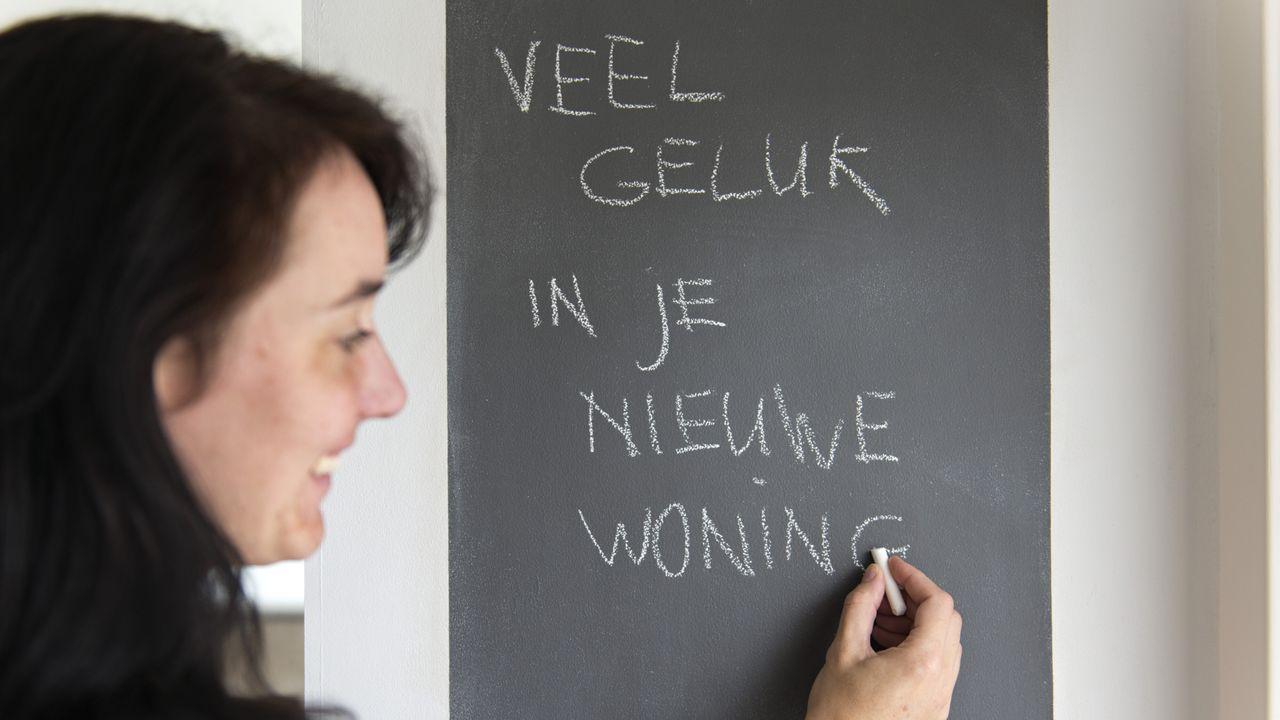 VEEL
GELUK
IN jE
NIEUWE
WONiNG